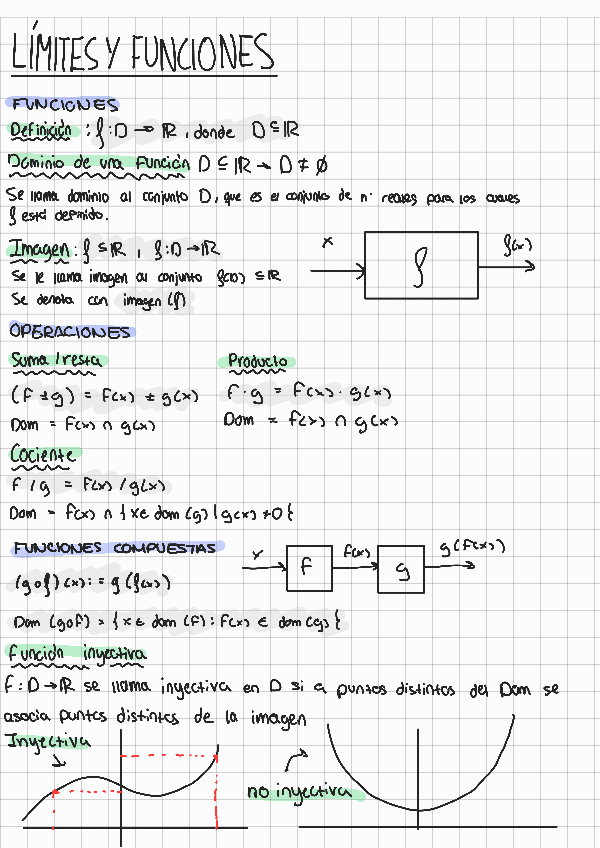 LÍMITES Y FUNCIONES
FUNCIONES
Definición : f : D → ℝ , donde D ⊆ ℝ
Dominio de una función D ⊆ ℝ → D ≠ ∅
Se llama dominio al conjunto D, que es el conjunto de nº reales para los cuales
f está definido.
Imagen : f ⊆ ℝ , f : D → ℝ
Se le llama imagen al conjunto f(D) ⊆ ℝ
Se denota con imagen (f)
x
f
f(x)
OPERACIONES
Suma / resta
(f ± g) = f(x) ± g(x)
Dom = f(x) ∩ g(x)
Producto
f · g = f(x) · g(x)
Dom = f(x) ∩ g(x)
Cociente
f / g = f(x) / g(x)
Dom = f(x) ∩ { x ∈ dom (g) | g(x) ≠ 0 {
FUNCIONES COMPUESTAS
x
f
f(x)
g
g(f(x))
(g o f) (x) : = g (f(x))
Dom (g o f) = { x ∈ dom (f) : f(x) ∈ dom (g) {
Función inyectiva
f : D → ℝ se llama inyectiva en D si a puntos distintos del Dom se
asocia puntos distintos de la imagen
Inyectiva
no inyectiva